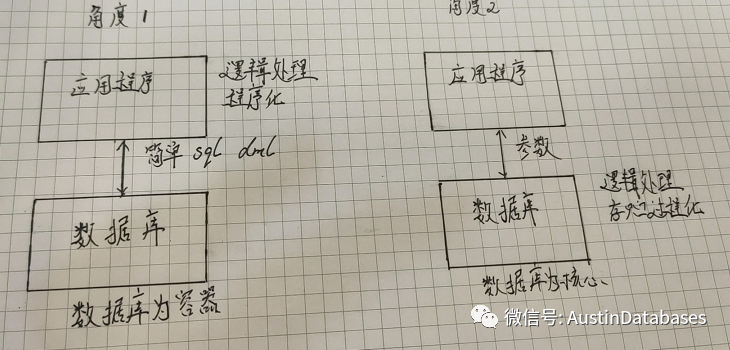 角度1
应用程序
逻辑处理
程序化
简单 sql dml
数据库
数据库为容器
角度2
应用程序
参数
数据库
逻辑处理
存贮过程化
数据库为核心
微信号: AustinDatabases